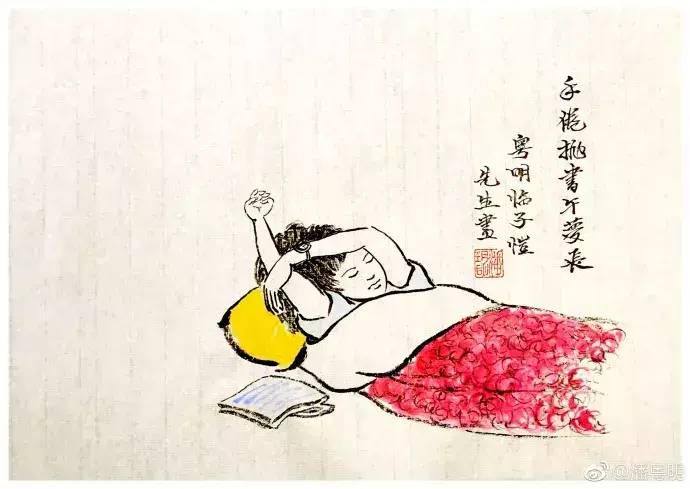 手倦抛书午梦长
粤明临子恺
先生画
@潘粤明